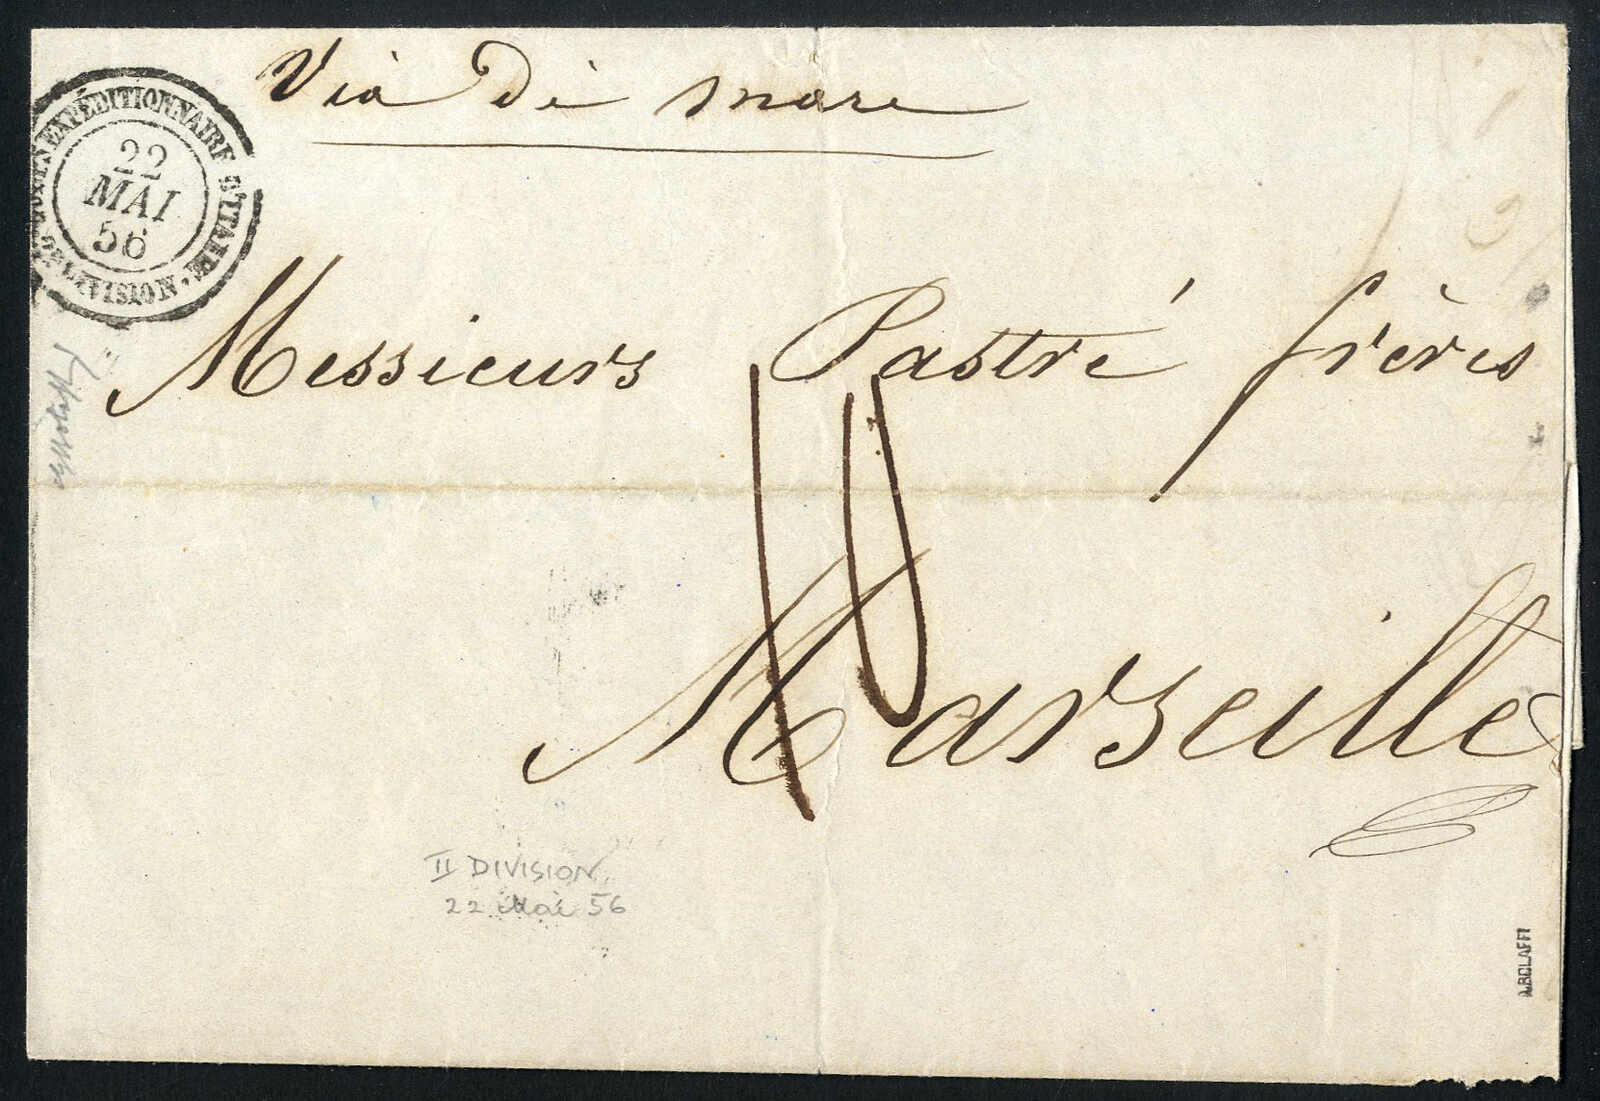 Via di mare
EXPÉDITIONNAIRE D'ITALIE
22
MAI
56
Messieurs Pastré frères
10
Marseille
II DIVISION
22 Mai 56
A.BOLAFFI